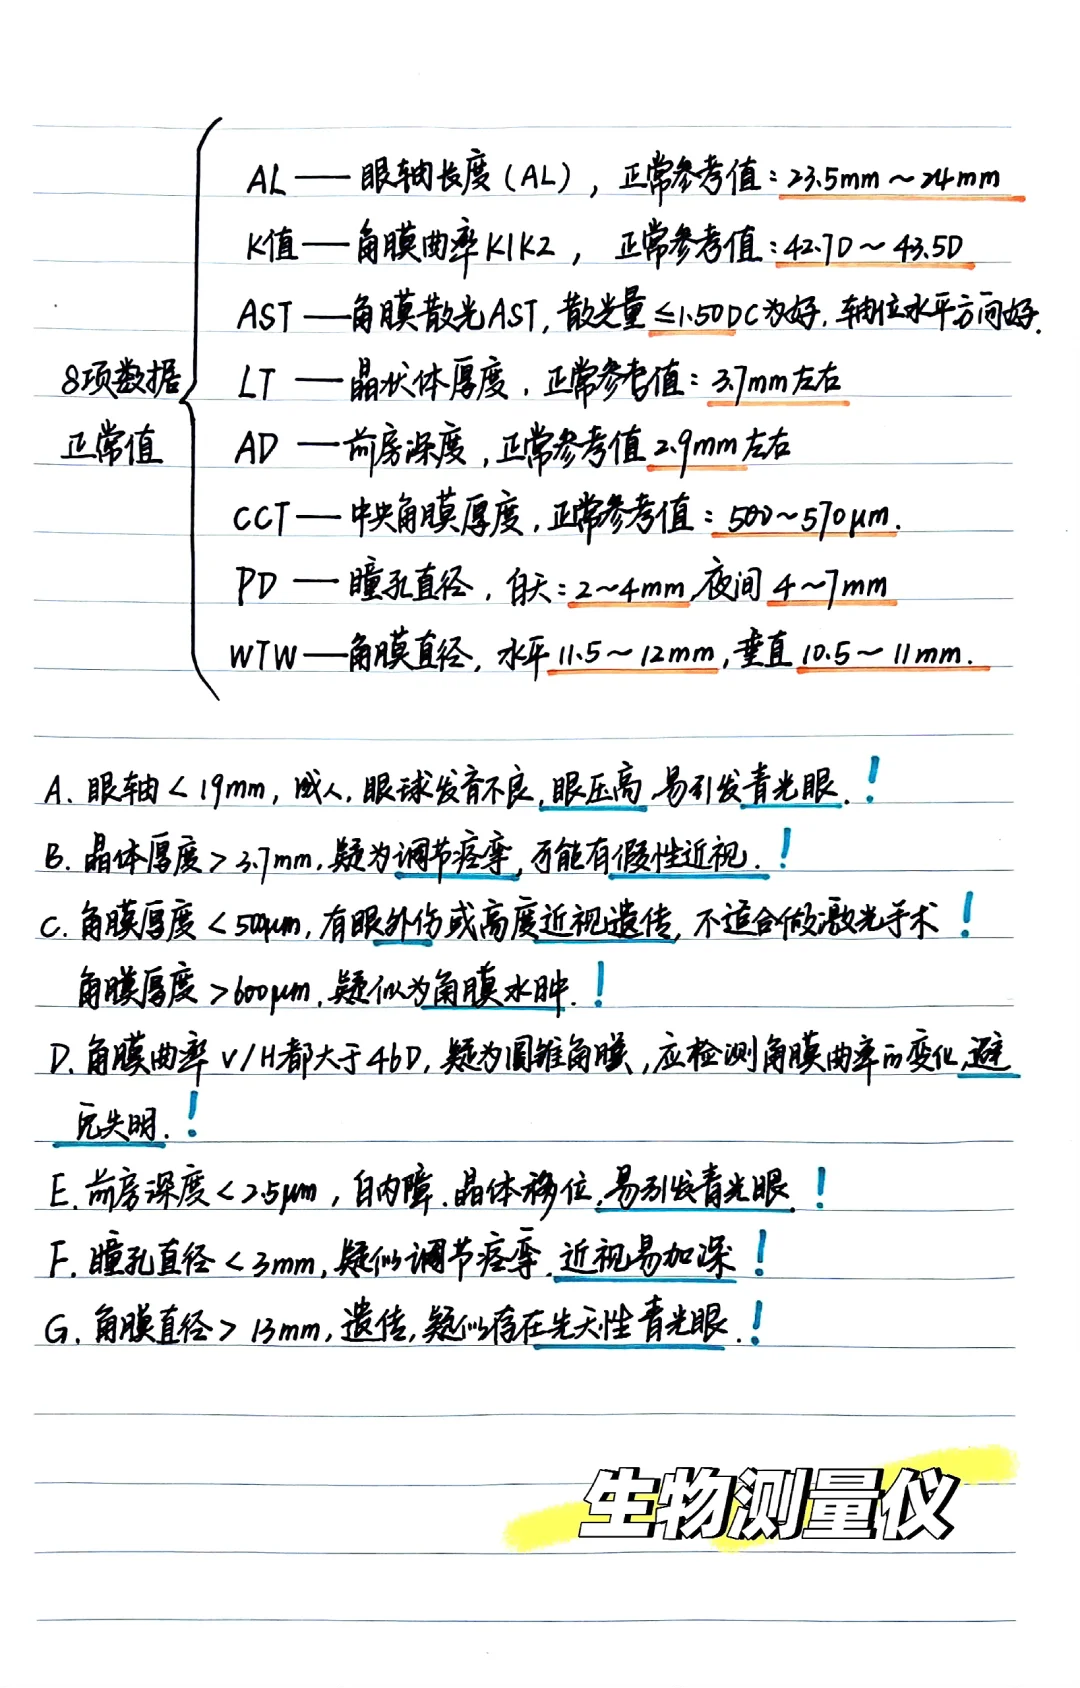 AL — 眼轴长度（AL），正常参考值：23.5mm～24mm
K值 — 角膜曲率K1K2，正常参考值：42.7D～43.5D
AST — 角膜散光AST，散光量≤1.50DC为好，轴位水平方向好.
8项数据
LT — 晶状体厚度，正常参考值：3.7mm左右
正常值
AD — 前房深度，正常参考值2.9mm左右
CCT — 中央角膜厚度，正常参考值：500～570μm.
PD — 瞳孔直径，白天：2～4mm，夜间4～7mm
WTW — 角膜直径，水平11.5～12mm，垂直10.5～11mm.
A. 眼轴＜19mm，成人，眼球发育不良，眼压高，易引发青光眼.！
B. 晶体厚度＞3.7mm，疑为调节痉挛，可能有假性近视.！
C. 角膜厚度＜500μm，有眼外伤或高度近视遗传，不适合做激光手术！
角膜厚度＞600μm，疑似为角膜水肿.！
D. 角膜曲率 V/H都大于46D，疑为圆锥角膜，应检测角膜曲率的变化，避
免失明.！
E. 前房深度＜2.5μm，白内障.晶体移位，易引发青光眼.！
F. 瞳孔直径＜3mm，疑似调节痉挛.近视易加深！
G. 角膜直径＞13mm，遗传，疑似存在先天性青光眼.！
生物测量仪